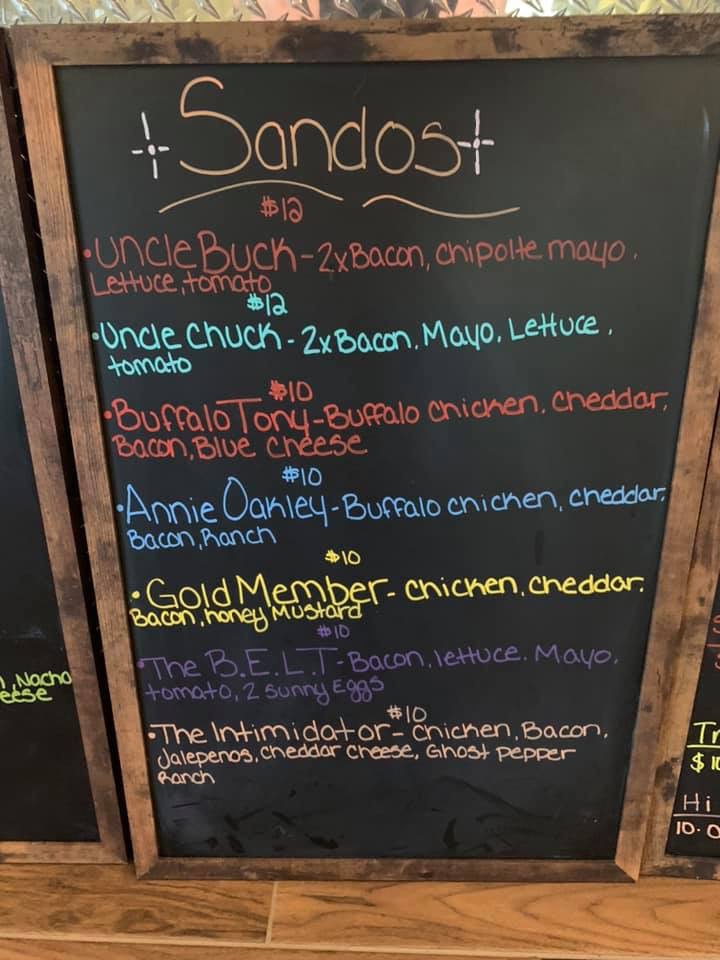 Sandos
$12
•Uncle Buck - 2x Bacon, chipolte mayo,
Lettuce, tomato
$12
•Uncle Chuck - 2x Bacon, Mayo, Lettuce,
tomato
$10
•Buffalo Tony - Buffalo chicken, cheddar,
Bacon, Blue cheese
$10
•Annie Oakley - Buffalo chicken, cheddar,
Bacon, Ranch
$10
•Gold Member - chicken, cheddar,
Bacon, honey Mustard
$10
•The B.E.L.T - Bacon, lettuce, Mayo,
tomato, 2 sunny Eggs
$10
•The Intimidator - chicken, Bacon,
Jalepenos, cheddar cheese, Ghost pepper
Ranch
, Nacho
eese
Tr
$10
Hi
10.0